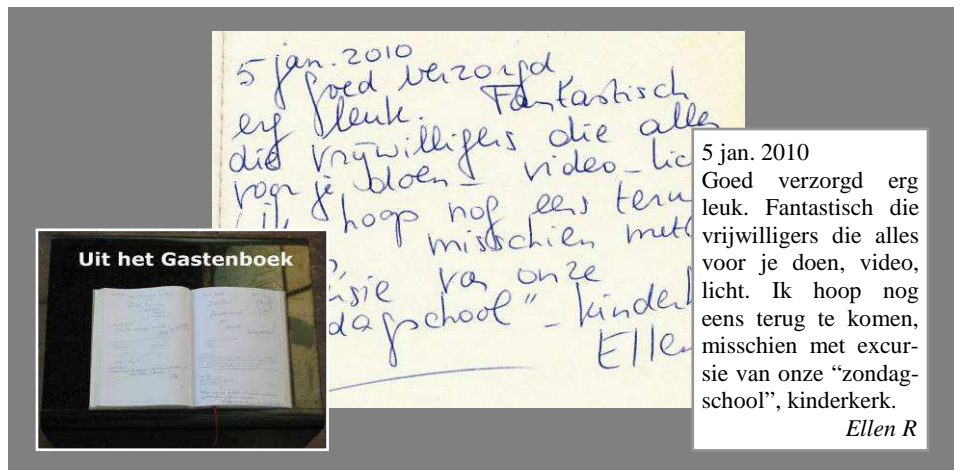 5 jan. 2010
Goed verzorgd
erg leuk. Fantastisch
die vrijwilligers die alles
voor je doen – video – lic
ik hoop nog eens teru
misschien met
sie van onze
dagschool" – kinderk
Elle
Uit het Gastenboek
5 jan. 2010
Goed verzorgd erg
leuk. Fantastisch die
vrijwilligers die alles
voor je doen, video,
licht. Ik hoop nog
eens terug te komen,
misschien met excur-
sie van onze “zondag-
school”, kinderkerk.
Ellen R